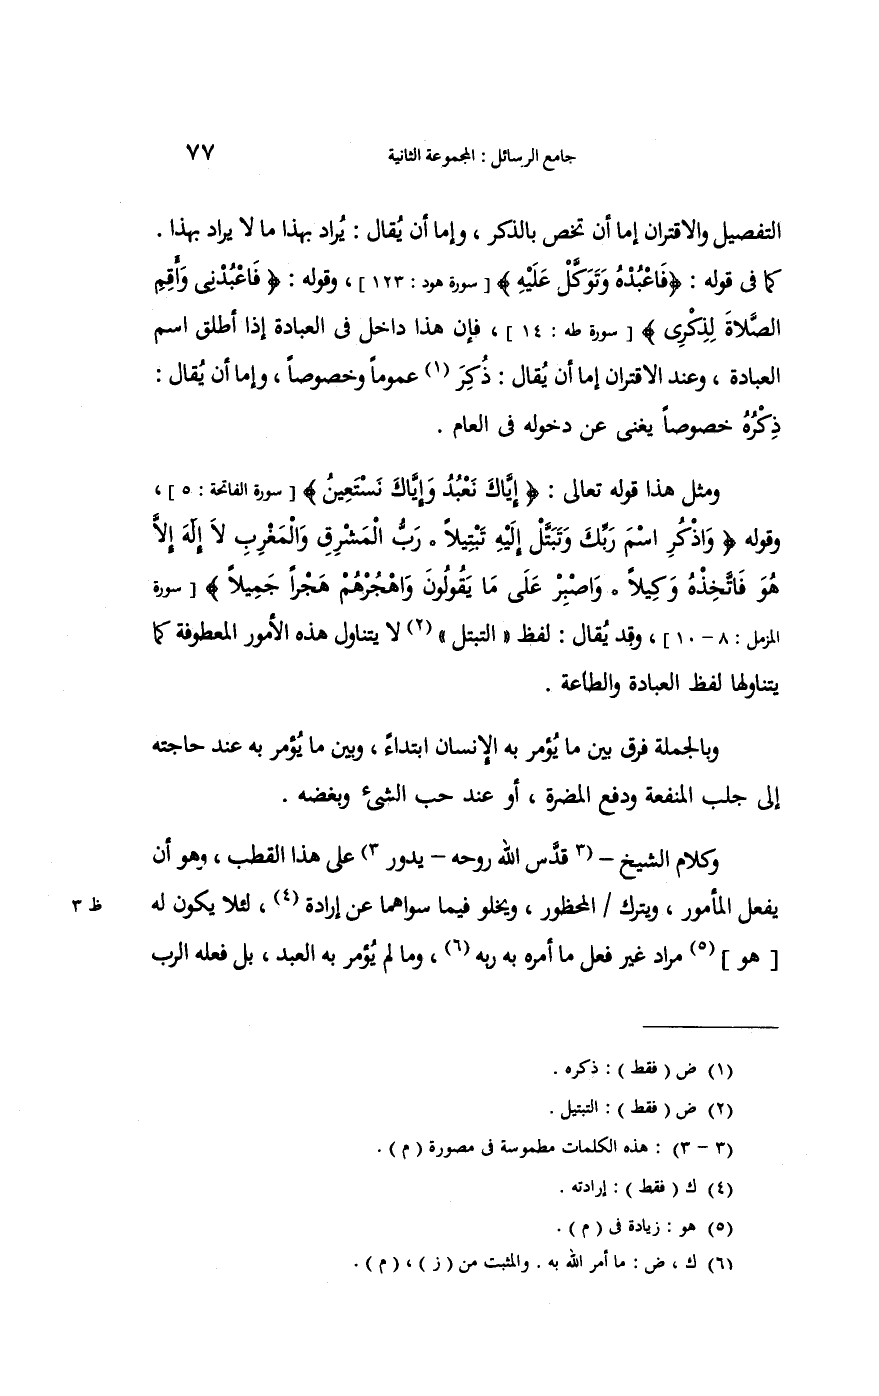 جامع الرسائل : المجموعة الثانية ٧٧
التفصيل والاقتران إما أن تخص بالذكر ، وإما أن يُقال : يُراد بهذا ما لا يراد بهذا .
كما فى قوله : ﴿فَاعْبُدْهُ وَتَوَكَّلْ عَلَيْهِ﴾ [ سورة هود : ١٢٣ ] ، وقوله : ﴿ فَاعْبُدْنِى وَأَقِمِ
الصَّلاَةَ لِذِكْرِى ﴾ [ سورة طه : ١٤ ] ، فإن هذا داخل فى العبادة إذا أطلق اسم
العبادة ، وعند الاقتران إما أن يُقال : ذُكِرَ (١) عموماً وخصوصاً ، وإما أن يُقال :
ذِكْرُهُ خصوصاً يغنى عن دخوله فى العام .
ومثل هذا قوله تعالى : ﴿ إِيَّاكَ نَعْبُدُ وَإِيَّاكَ نَسْتَعِينُ ﴾ [ سورة الفاتحة : ٥ ] ،
وقوله ﴿ وَاذْكُرِ اسْمَ رَبِّكَ وَتَبَتَّلْ إِلَيْهِ تَبْتِيلاً ٠ رَبُّ الْمَشْرِقِ وَالْمَغْرِبِ لاَ إِلَهَ إِلاَّ
هُوَ فَاتَّخِذْهُ وَكِيلاً ٠ وَاصْبِرْ عَلَى مَا يَقُولُونَ وَاهْجُرْهُمْ هَجْراً جَمِيلاً ﴾ [ سورة
المزمل : ٨ – ١٠ ] ، وقد يُقال : لفظ « التبتل » (٢) لا يتناول هذه الأمور المعطوفة كما
يتناولها لفظ العبادة والطاعة .
وبالجملة فرق بين ما يُؤمر به الإنسان ابتداءً ، وبين ما يُؤمر به عند حاجته
إلى جلب المنفعة ودفع المضرة ، أو عند حب الشىء وبغضه .
وكلام الشيخ – (٣ قدَّس الله روحه – يدور ٣) على هذا القطب ، وهو أن
يفعل المأمور ، ويترك / المحظور ، ويخلو فيما سواهما عن إرادة (٤) ، لئلا يكون له ظ ٣
[ هو ] (٥) مراد غير فعل ما أمره به ربه (٦) ، وما لم يُؤمر به العبد ، بل فعله الرب
(١) ض ( فقط ) : ذكره .
(٢) ض ( فقط ) : التبتيل .
(٣ – ٣) : هذه الكلمات مطموسة فى مصورة ( م ) .
(٤) ك ( فقط ) : إرادته .
(٥) هو : زيادة فى ( م ) .
(٦) ك ، ض : ما أمر الله به . والمثبت من ( ز ) ، ( م ) .